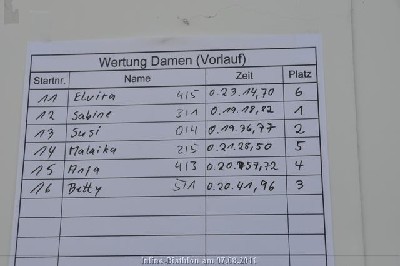 Wertung Damen (Vorlauf)
Startnr. Name Zeit Platz
11 Elvira 4/5 0.23.14,70 6
12 Sabine 3/1 0.19.18,82 1
13 Susi 0/4 0.19.36,77 2
14 Malaika 2/5 0.21.28,50 5
15 Anja 4/3 0.20.59,72 4
16 Betty 5/1 0.20.41,96 3